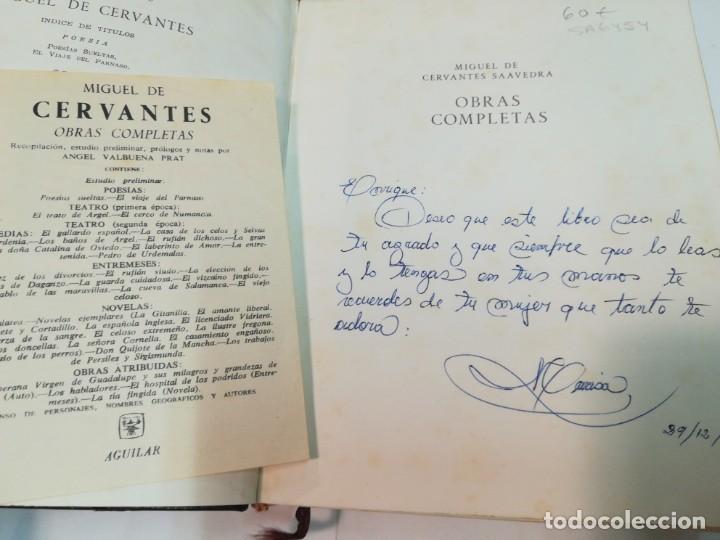 GUEL DE CERVANTES
INDICE DE TITULOS
POESIA
POESÍAS SUELTAS,
EL VIAJE DEL PARNASO,
MIGUEL DE
CERVANTES
OBRAS COMPLETAS
Recopilación, estudio preliminar, prólogos y notas por
ANGEL VALBUENA PRAT
CONTIENE:
Estudio preliminar.
POESÍAS:
Poesías sueltas.—El viaje del Parnaso
TEATRO (primera época):
El trato de Argel.—El cerco de Numancia.
TEATRO (segunda época):
EDIAS: El gallardo español.—La casa de los celos y Selvas
rdenia.—Los baños de Argel.—El rufián dichoso.—La gran
doña Catalina de Oviedo.—El laberinto de Amor.—La entre-
tenida.—Pedro de Urdemalas.
ENTREMESES:
ez de los divorcios.—El rufián viudo.—La elección de los
de Daganzo.—La guarda cuidadosa.—El vizcaíno fingido.—
ablo de las maravillas.—La cueva de Salamanca.—El viejo
celoso.
NOVELAS:
alatea.—Novelas ejemplares (La Gitanilla. El amante liberal.
ete y Cortadillo. La española inglesa. El licenciado Vidriera.
erza de la sangre. El celoso extremeño. La ilustre fregona.
doncellas. La señora Cornelia. El casamiento engañoso.
io de los perros).—Don Quijote de la Mancha.—Los trabajos
de Persiles y Sigismunda.
OBRAS ATRIBUIDAS:
berana Virgen de Guadalupe y sus milagros y grandezas de
(Auto).—Los habladores.—El hospital de los podridos (Entre-
meses).—La tía fingida (Novela).
NSO DE PERSONAJES, NOMBRES GEOGRÁFICOS Y AUTORES
AGUILAR
60€
SA6454
MIGUEL DE
CERVANTES SAAVEDRA
OBRAS
COMPLETAS
Enrique:
Deseo que este libro sea de
tu agrado y que siempre que lo leas
y lo tengas en tus manos te
recuerdes de tu mujer que tanto te
adora:
29/12/
todocoleccion